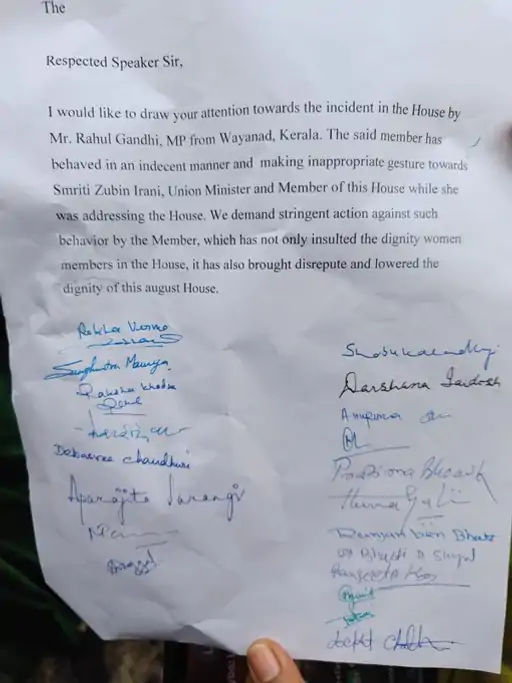 The
Respected Speaker Sir,
I would like to draw your attention towards the incident in the House by
Mr. Rahul Gandhi, MP from Wayanad, Kerala. The said member has
behaved in an indecent manner and making inappropriate gesture towards
Smriti Zubin Irani, Union Minister and Member of this House while she
was addressing the House. We demand stringent action against such
behavior by the Member, which has not only insulted the dignity women
members in the House, it has also brought disrepute and lowered the
dignity of this august House.
Rekha Verma
Sanghmitra Maurya
Raksha Khadse
Debasree Chaudhuri
Aparajita Sarangi
Darshana Jardosh
Ranjanben Bhatt